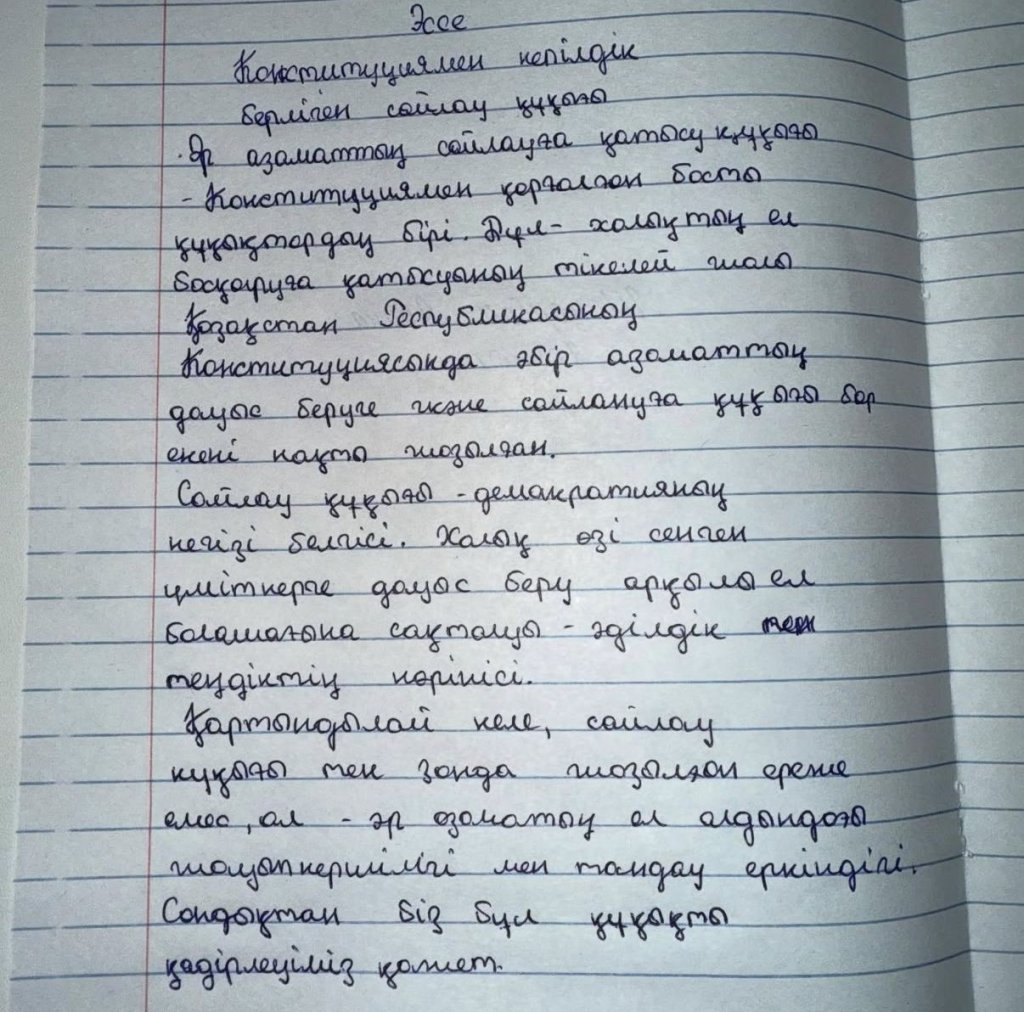 Эссе
Конституциямен кепілдік
берліген сайлау құқығы
Әр азаматтың сайлауға қатысу құқығы
- Конституциямен қорғалған басты
құқықтардың бірі. Бұл - халықтың ел
басқаруға қатысуының тікелей жолы
Қазақстан Республикасының
Конституциясында әбір азаматтың
дауыс беруге және сайлануға құқығы бар
екені нақты жазылған.
Сайлау құқығы - демакратияның
негізі белгісі. Халық өзі сенген
үміткерге дауыс беру арқылы ел
болашағына сақталуы - әділдік пен
теңдіктің көрінісі.
Қартындылай келе, сайлау
күқығы тек заңда жазылған ереже
емес, ал - әр азаматың ел алдындағы
жауыпкершілігі мен таңдау еркіндігі.
Сондықтан біз бұл құқықты
қадірлеуіміз қажет.